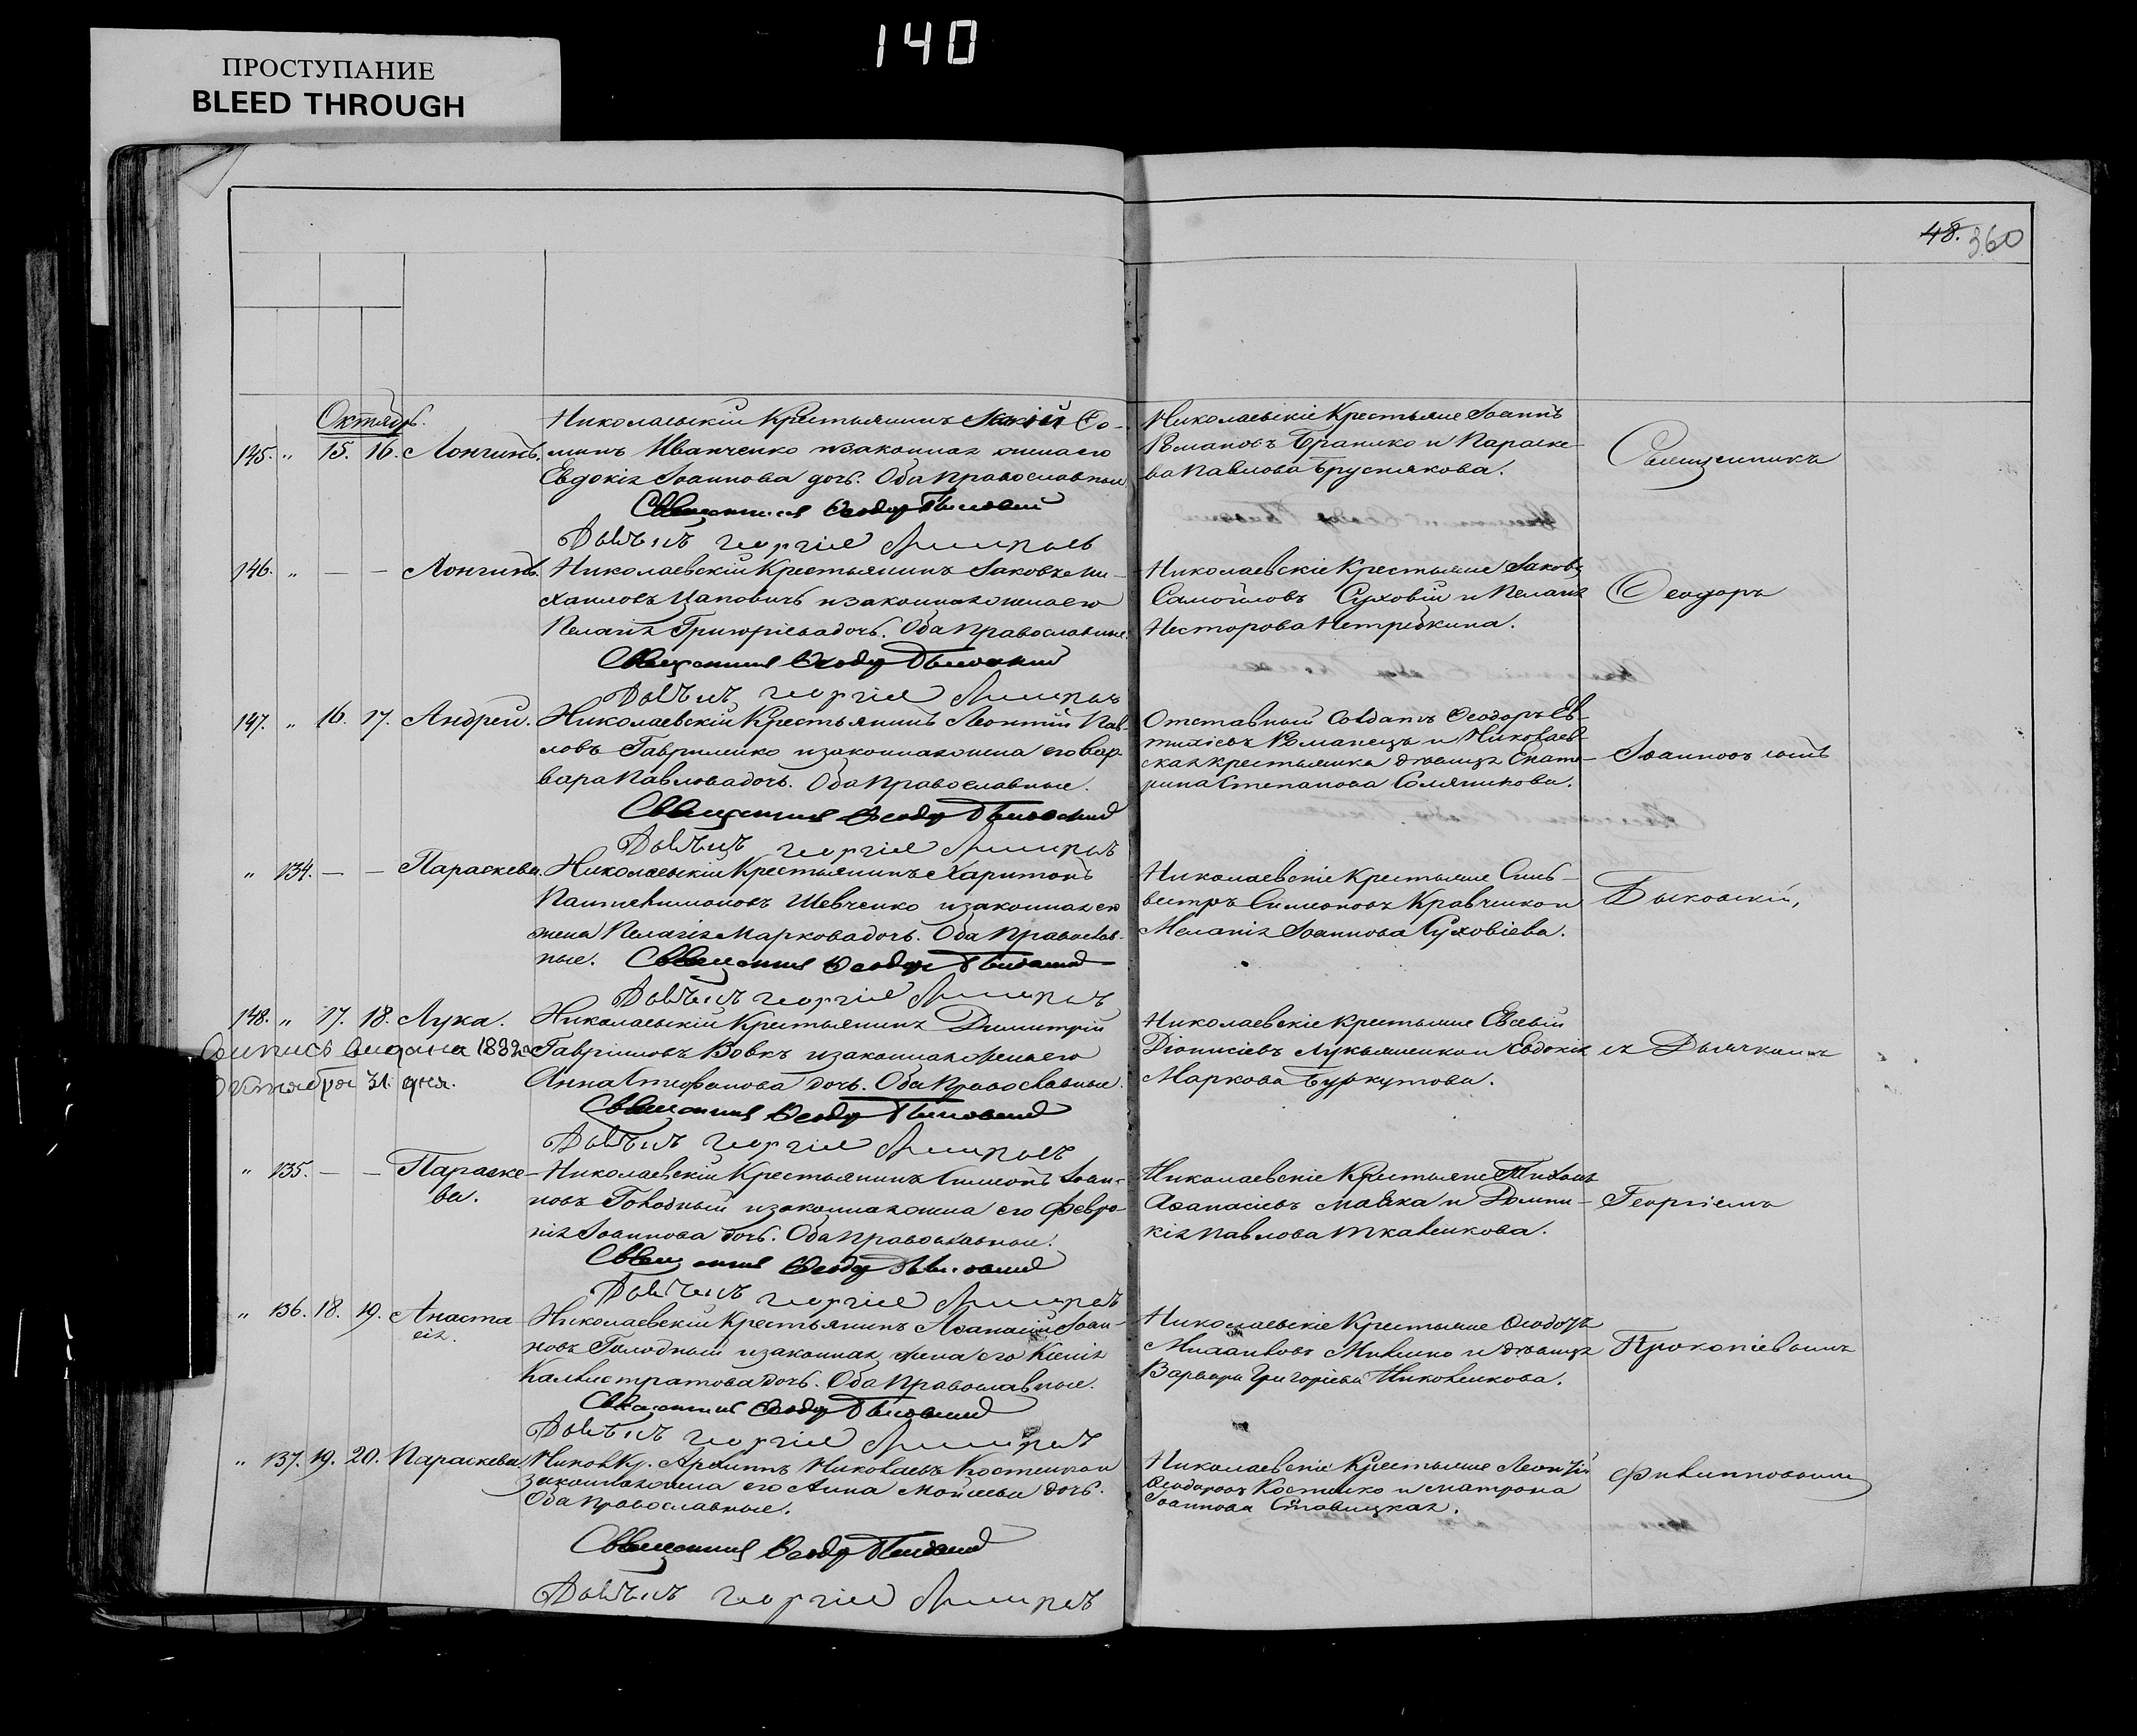 140
ПРОСТУПАНИЕ
BLEED THROUGH
48. 360
Октябрь.
145. „ 15. 16. Лонгинъ.
Николаевскій Крестьянинъ
минъ Иванченко и законная жена его
Евдокія Іоаннова дочь. Оба православные
Священникъ Ѳеодоръ Быковскій
Дьячекъ Георгій
Николаевскіе Крестьяне Іоаннъ
Романовъ и Параске-
ва Павлова Бруслякова.
Священникъ
146. „ — — Лонгинъ.
Николаевскій Крестьянинъ Іаковъ Ми-
хаиловъ Цаповичъ и законная жена его
Пелагія Григоріева дочь. Оба Православные.
Священникъ Ѳеодоръ Быковскій
Дьячекъ Георгій
Николаевскіе Крестьяне Іаковъ
Самойловъ Суховій и Пелагія
Несторова Нетребкина.
Ѳеодоръ
147. „ 16. 17. Андрей.
Николаевскій Крестьянинъ Леонтій Пав-
ловъ Гавриленко и законная жена его Вар-
вара Павлова дочь. Оба Православные.
Священникъ Ѳеодоръ Быковскій
Дьячекъ Георгій
Отставный Солдатъ Ѳеодоръ Ев-
тихіевъ Романецъ и Николаев-
ская крестьянка дѣвица Екате-
рина Степанова Соляникова.
Іоанновъ
„ 134. — — Параскева.
Николаевскій Крестьянинъ Харитонъ
Пантелимоновъ Шевченко и законная его
жена Пелагія Маркова дочь. Оба Православ-
ные. Священникъ Ѳеодоръ Быковскій
Дьячекъ Георгій
Николаевскіе Крестьяне Силь-
вестръ Симеоновъ Кравченко и
Меланія Іоаннова Суховіева.
Быковскій,
148. „ 17. 18. Лука.
Выпись выдана 1889
Октября 31. дня.
Николаевскій Крестьянинъ Димитрій
Гавріиловъ Вовкъ и законная жена его
Анна Стефанова дочь. Оба Православные.
Священникъ Ѳеодоръ Быковскій
Дьячекъ Георгій
Николаевскіе Крестьяне Евсевій
Діонисіевъ Лукьяненко и Евдокія
Маркова Буркутова.
съ Дьячкомъ
„ 135. — — Параске-
ва.
Николаевскій Крестьянинъ Симеонъ Іоан-
новъ Голодный и законная жена его Февро-
нія Іоаннова дочь. Оба Православные.
Священникъ Ѳеодоръ Быковскій
Дьячекъ Георгій
Николаевскіе Крестьяне Тихонъ
Аѳанасіевъ Маяка и Домни-
кія Павлова Ткаченкова.
Георгіемъ
„ 136. 18. 19. Анаста
сія.
Николаевскій Крестьянинъ Аѳанасій Іоан-
новъ Голодный и законная жена его Ксенія
Каллистратова дочь. Оба Православные.
Священникъ Ѳеодоръ Быковскій
Дьячекъ Георгій
Николаевскіе Крестьяне Ѳеодоръ
и дѣвица
Варвара Григоріева Николенкова.
Прокопіевымъ
„ 137. 19. 20. Параскева
Никол. Кр. Архиппъ Николаевъ Костенко и
законная жена его Анна Моисеева дочь.
Оба православные.
Священникъ Ѳеодоръ Быковскій
Дьячекъ Георгій
Николаевскіе Крестьяне Леонтій
Ѳеодоровъ Костенко и Матрона
Іоаннова Ставицкая.
Филипповымъ